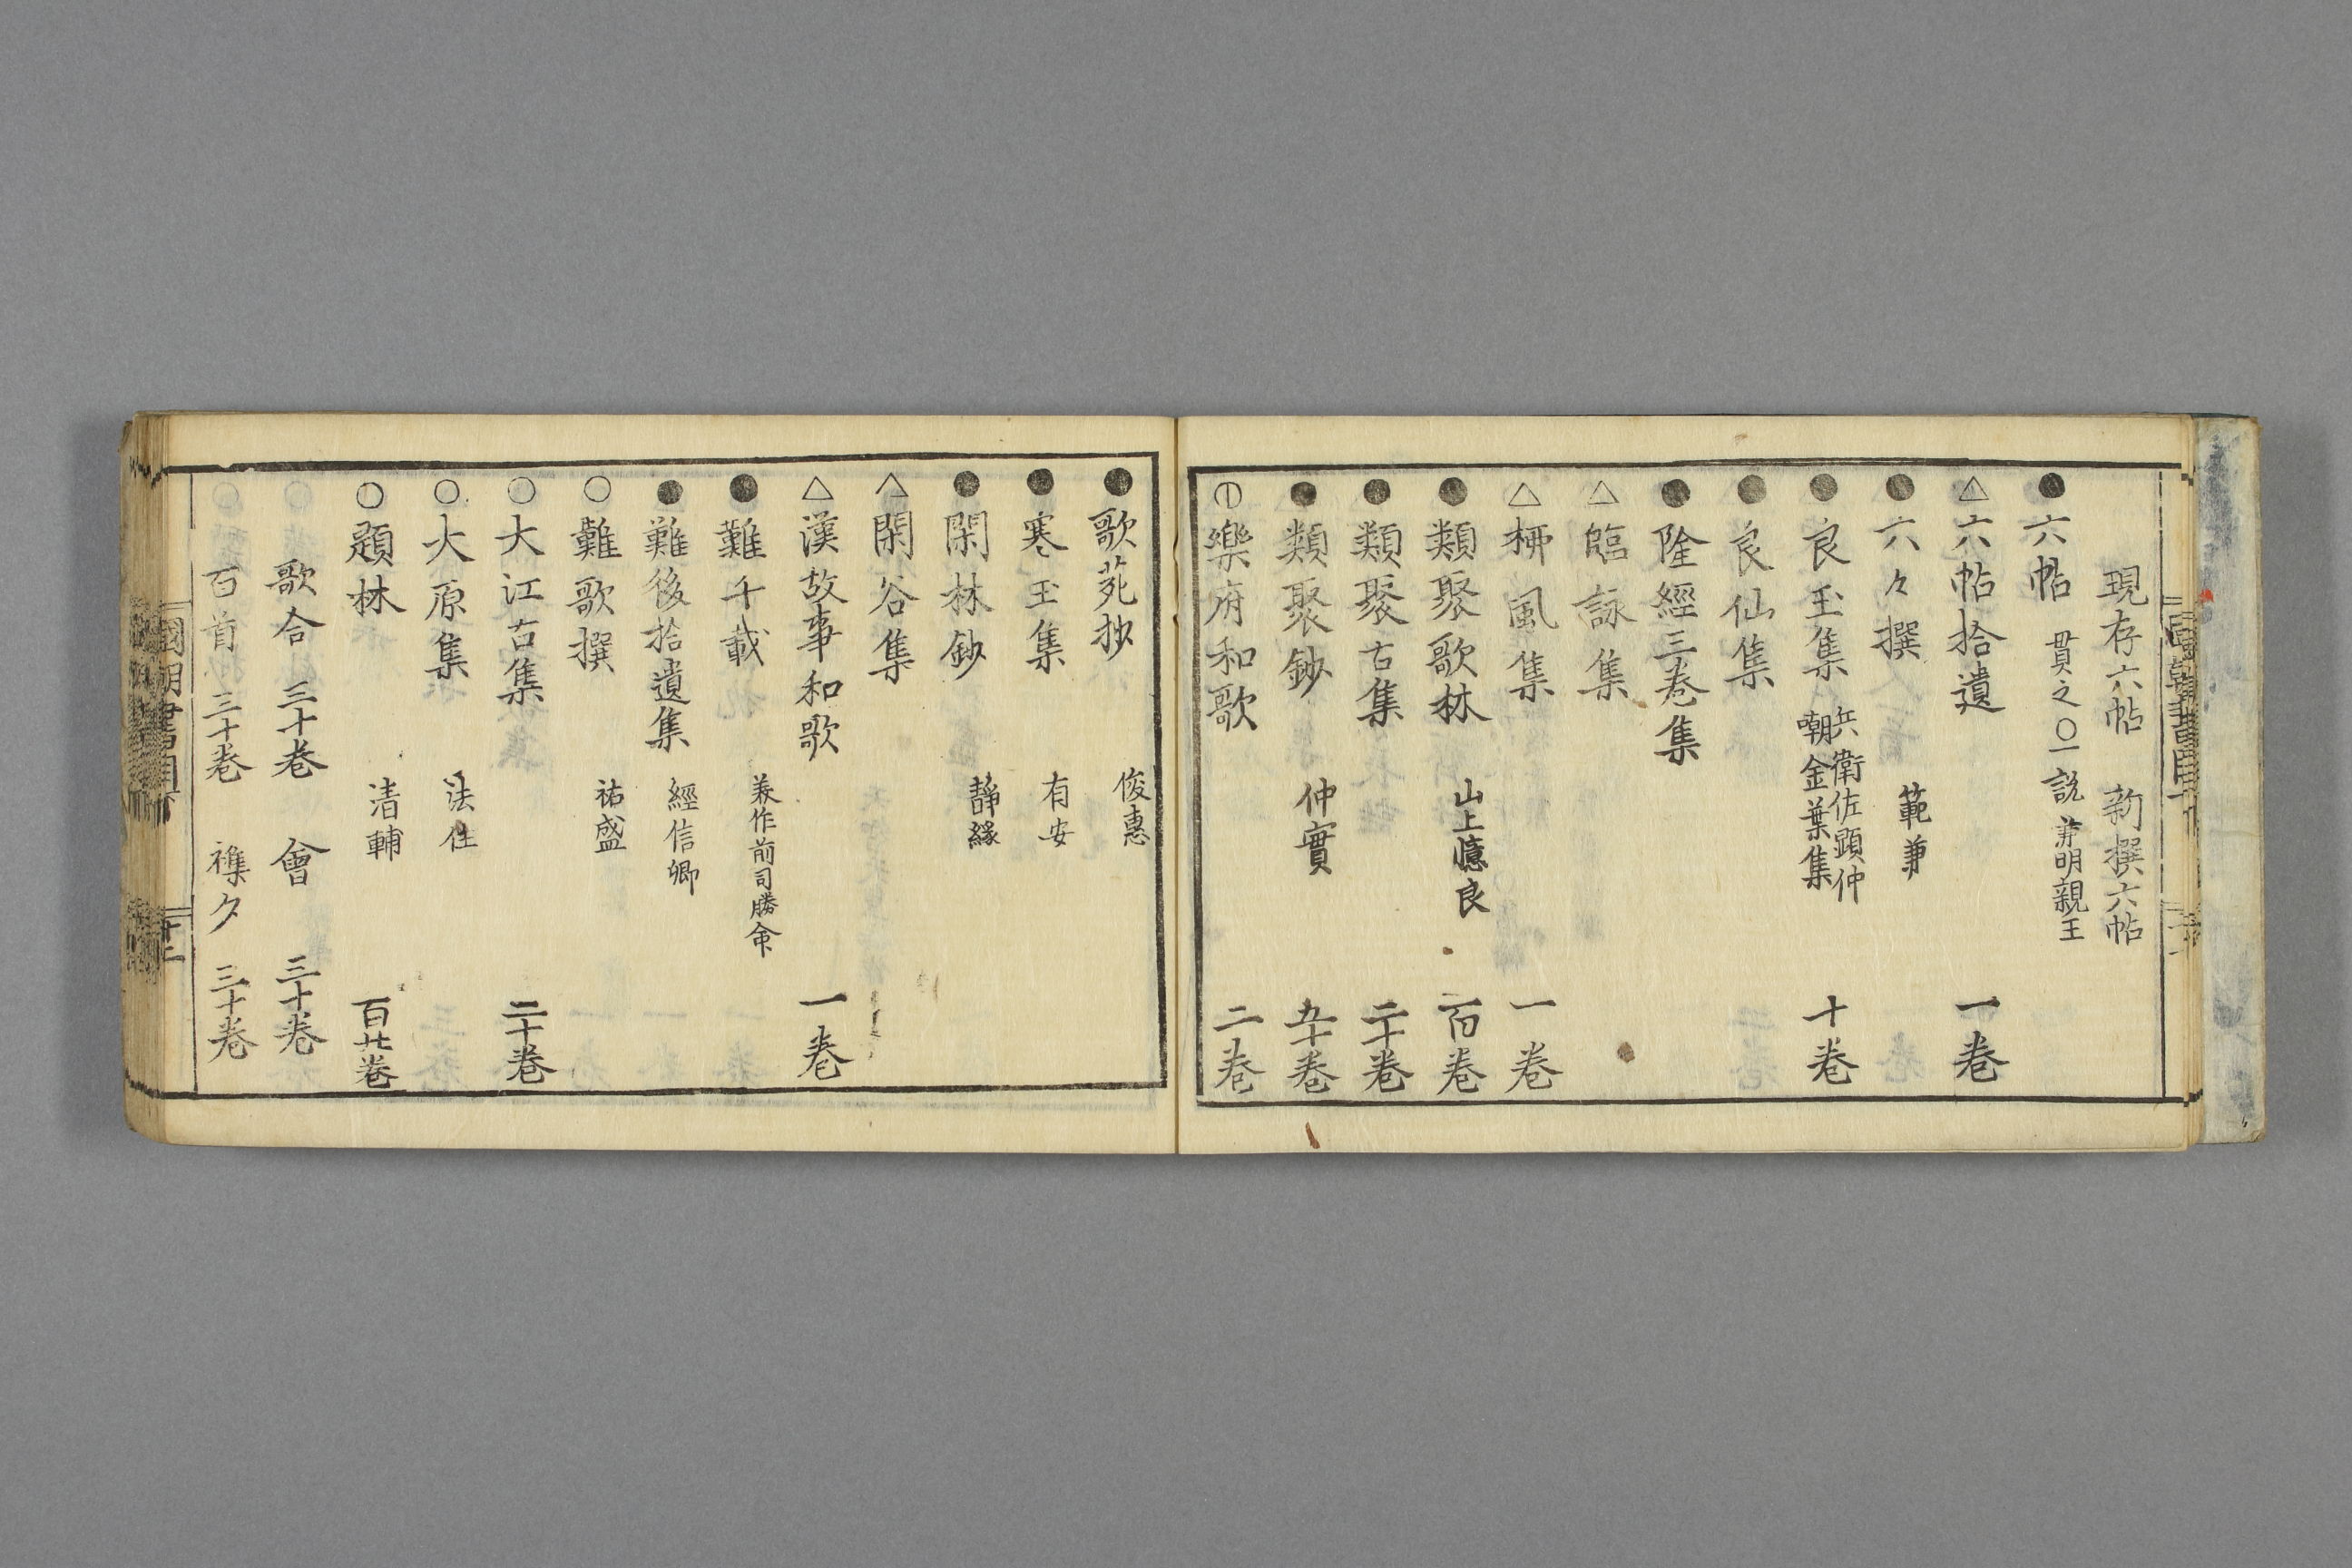 現存六帖 新撰六帖
●六帖 貫之〇一説兼明親王
△六帖拾遺 一巻
●六々撰 範兼
●良玉集 兵衛佐顕仲
嘲金葉集 十巻
●良仙集
●隆經三巻集
△臨詠集
△柳風集 一巻
●類聚歌林 山上憶良 一百巻
●類聚古集 二十巻
●類聚鈔 仲實 五十巻
⦶樂府和歌 二巻
●歌苑抄 俊惠
●寒玉集 有安
●閑林鈔 靜縁
△閑谷集
△漢故事和歌 一巻
●難千載 美作前司勝命
●難後拾遺集 經信卿
○難歌撰 祐盛
○大江古集 二十巻
○大原集 法住
○題林 清輔 百廿巻
歌合 三十巻 會 三十巻
百首 三十巻 襍夕 三十巻
國朝書目下 十二